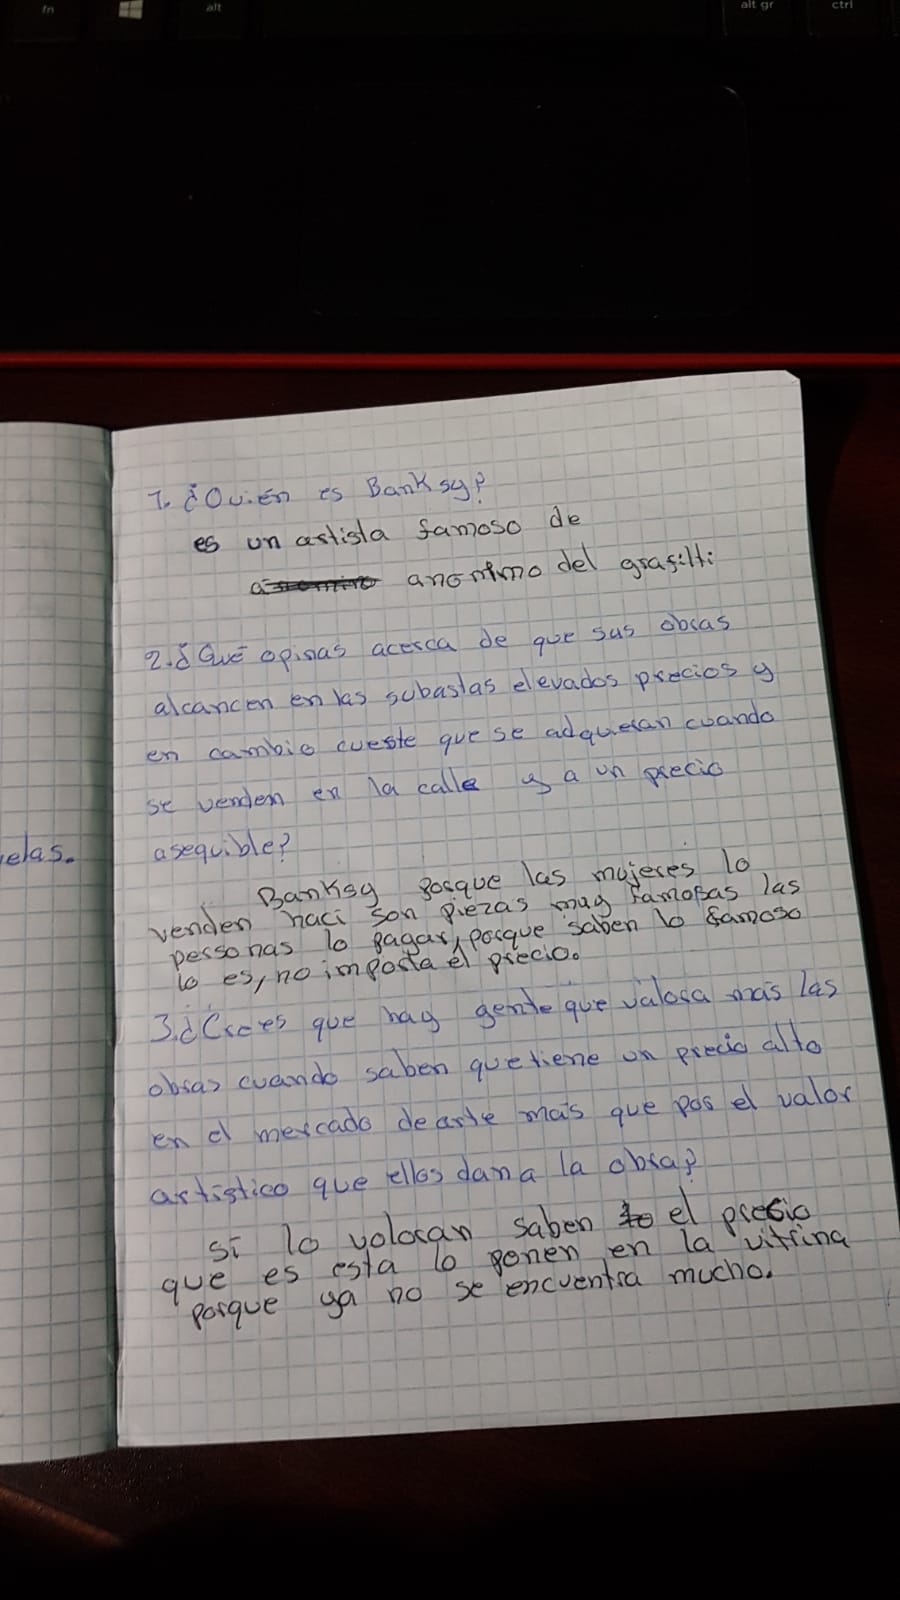 fn
alt
alt gr
ctrl
1. ¿Quién es Banksy?
es un artista famoso de
anonimo del grafilti
2. ¿Qué opinas acerca de que sus obras
alcancen en las subastas elevados precios y
en cambio cueste que se adquieran cuando
se venden en la calle y a un precio
elas.
asequible?
Banksy porque las mujeres lo
venden haci son piezas muy famosas las
personas lo pagar, porque saben lo famoso
lo es, no importa el precio.
3. ¿Crees que hay gente que valora más las
obras cuando saben que tiene un precio alto
en el mercado de arte más que por el valor
artístico que ellos dan a la obra?
Si lo voloran saben el precio
que es esta lo ponen en la vitrina
porque ya no se encuentra mucho.